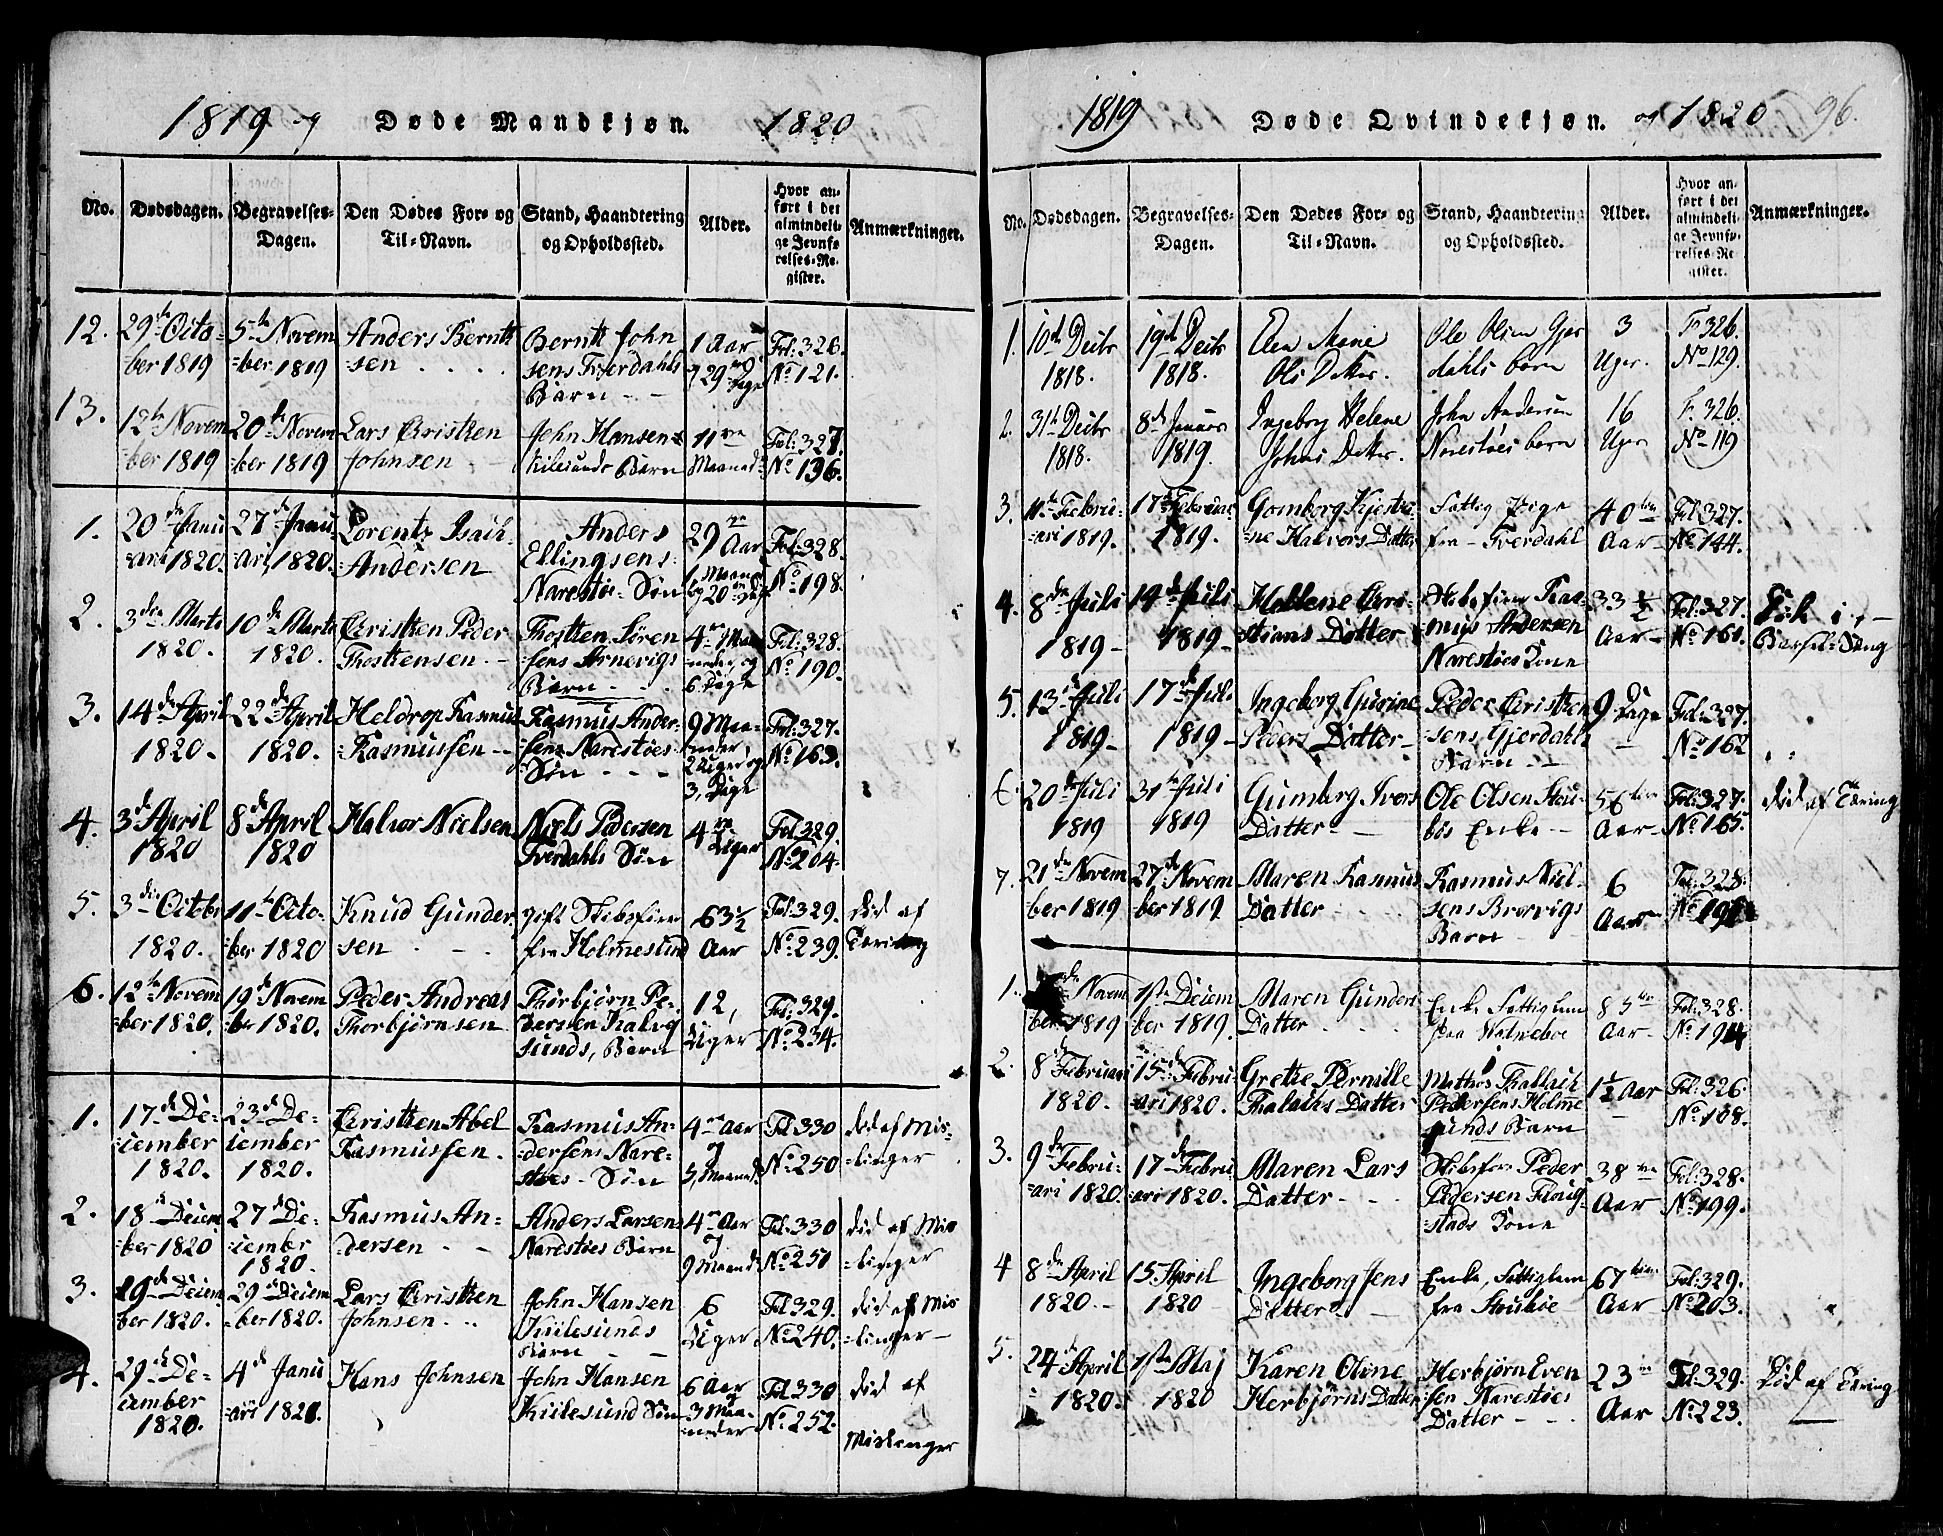 1819 og Døde Mandkjøn. 1820
No. Dødsdagen. Begravelses-Dagen. Den Dødes For- og Til-Navn. Stand, Haandtering og Opholdssted. Alder. Hvor anført i det almindelige Jevnførelses-Register. Anmærkninger.
12. 29de Octo- 5te Novem Anders Berntt Berntt John 1 Aar Fol: 326.
ber 1819 =ber 1819 =sen . . . . sens Fverdahls og 29 Dage No 121.
Barn - -
13. 12te Novem 20de Novem Lars Cristten John Hansens 11 Fol: 327.
ber 1819 =ber 1819 Johnsen Kilesunds Barn Maaned No 136.
1. 20de Janu 27de Janu Lorentz Isach Anders 29 Aar Fol: 328.
=ari 1820. =ari 1820. Andersen Ellingsens 1 Maaned No 198.
Narestøe- Søn og 20 Dage
2. 3die Marts 10de Marts Cristten Peder Thostten Sören 4 Maa Fol: 328.
1820. 1820. Thosttensen. - sens Arnevigs neder og No 190.
Barn - - 6 Dage
3. 14de April 22de April Heldrop Rasmus Rasmus Ander- 9 Maa- Fol: 327.
1820. 1820. =Rasmussen - - sens Narestøes neder, No 163.
Søn - - - 2 Uger og
3, Dage
4. 3de April 8de April Halvor Nielsen Niels Pedersen 4 Uger Fol 329.
1820 1820 Fverdahls Søn No 204.
5. 3die Octobr 11te Octo- Knud Gunder gift 63½ Fol: 329. død af
1820. ber 1820 sen - - fra Holmesund Aar No 239. Tæring
6. 12te Novem 19de Novem Peder Andreas Thorbjørn Pe- 12, Fol: 329.
=ber 1820. =ber 1820. Thorbjørnsen dersen Kalvø Uger No 234.
sunds, Barn
1. 17de De- 23de De- Cristten Abel Rasmus An- 4 Aar Fol 330 død af Mis-
=cember cember Rasmussen. =dersens Nare- og No 250 =linger
1820. 1820. støes- Søn 3, Maaned
2. 18de Decem 27de De- Rasmus An- Anders Larsens 4 Aar Fol: 330 død af Mis
=ber 1820 =cember dersen - - Narestøes Barn og No 251 =linger
1820. 9 Maand.
3. 19de Decem 29de Decem Lars Cristten John Hansen 6 Fol: 329. død af Mis
ber 1820. =ber 1820. Johnsen. . . Kiilesunds Uger No 240. =linger-
Barn - -
4. 29de De- 4de Janu Hans Johnsen John Hansen 6 Aar Fol 330 død af
cember =ari 1821. Kiilesund Søn 3 Maa- No 252. Mislenger
1820. neder
1819 Døde Qvindekjøn. og 1820 96.
No. Dødsdagen. Begravelses-Dagen. Den Dødes For- og Til-Navn. Stand, Haandtering og Opholdssted. Alder. Hvor anført i det almindelige Jevnførelses-Register. Anmærkninger.
1. 10de Decbr 19de Decbr Elen Marie Ole Olsen Gjer 3 Fo 326.
1818. 1818. Ols Datter. dahls barn Uger. No 129.
2. 31te Decbr 8de Januar Ingeborg Helene John Andersen 16 Fo 326.
1818. 1819. Johns Datter. Narestøes barn Uger No 119
3. 11te Febru- 17de Februar Gomborg Kjersti Fattig Pige 40 Fol 327.
=ari 1819. 1819. =ne Halvors Datter fra - Fverdahl Aar- No 144.
4. 8de Juli 14de Juli Hellene Cri- Ras- 33½ Fol: 327. Død i
1819- 1819- stians Datter mus Andersen Aar- No 161. Barsel-Seng
Narestøes Kone
5. 13de Juli 17de Juli Ingeborg Gurine Peder Cristten 9 Dage Fol: 327.
1819- 1819- Peders Datter- sens Gjerdahls No 162
Barn - -
6. 20de Juli 31te Juli Gumborg Ivers Ole Olsen 56 Fol: 327. død af Tæring
1819 1819 Datter- Enke - Aar- No 165.
7. 21de Novem 27de Novem Maren Rasmus Rasmus Niel- 6 Fol: 328.
ber 1819 ber 1819. Datter- sens Brovigs Aar
Barn -
1. de Novem 1ste Decem Maren Gunders Enke Fattiglem 85 Fol: 328.
ber 1819 ber 1819. Datter Aar- No 194
2. 8de Februari 15de Febru- Grethe Pernille Mathis Thallach 1½ Aar Fol: 326.
1820. =ari 1820. Thalachs Datter Pedersens Holme No 108.
sunds Barn
3. 9de Febru- 17de Febru Maren Lars Peder 38 Fol: 328.
=ari 1820. =ari 1820. Datter- - Pedersen Flaug Aar No 199.
stads Kone
4 8de April 15. April Ingeborg Jens Enke, Fattiglem 67 Fol: 329.
1820.- 1820 Datter fra Aar No 203.
5. 24de April 1ste Maj Karen Oline Herbjørn Even 23 Fol: 329. Død af Tæring
1820. 1820 Herbjørns Datter sen Narestøes Aar No 223.
Datter - - -